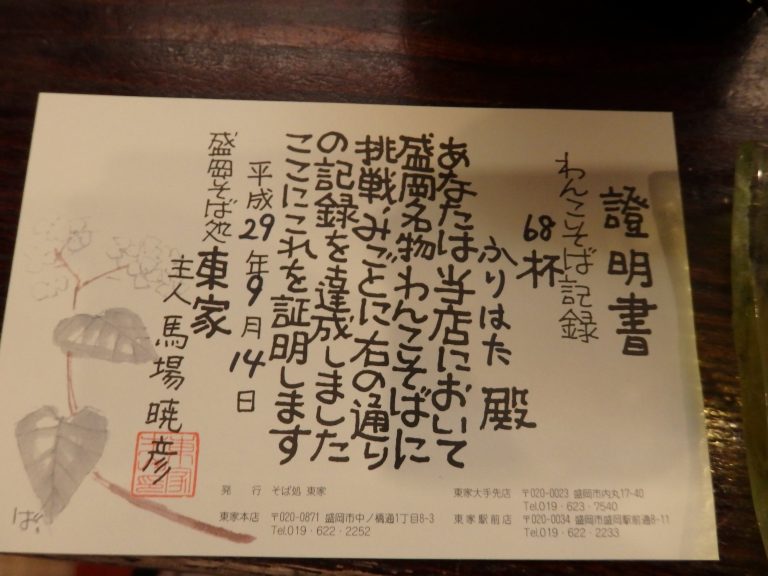 證明書
わんこそば記録
68杯
ふりはた 殿
あなたは当店において
盛岡名物わんこそばに
挑戦、みごとに右の通り
の記録を達成しました
ここにこれを証明します
平成29年9月14日
盛岡そば処 東家
主人 馬場 暁彦
発 行 そば処 東家
東家本店 〒020-0871 盛岡市中ノ橋通1丁目8-3
Tel.019・622・2252
東家大手先店 〒020-0023 盛岡市内丸17-40
Tel.019・623・7540
東家駅前店 〒020-0034 盛岡市盛岡駅前通8-11
Tel.019・622・2233